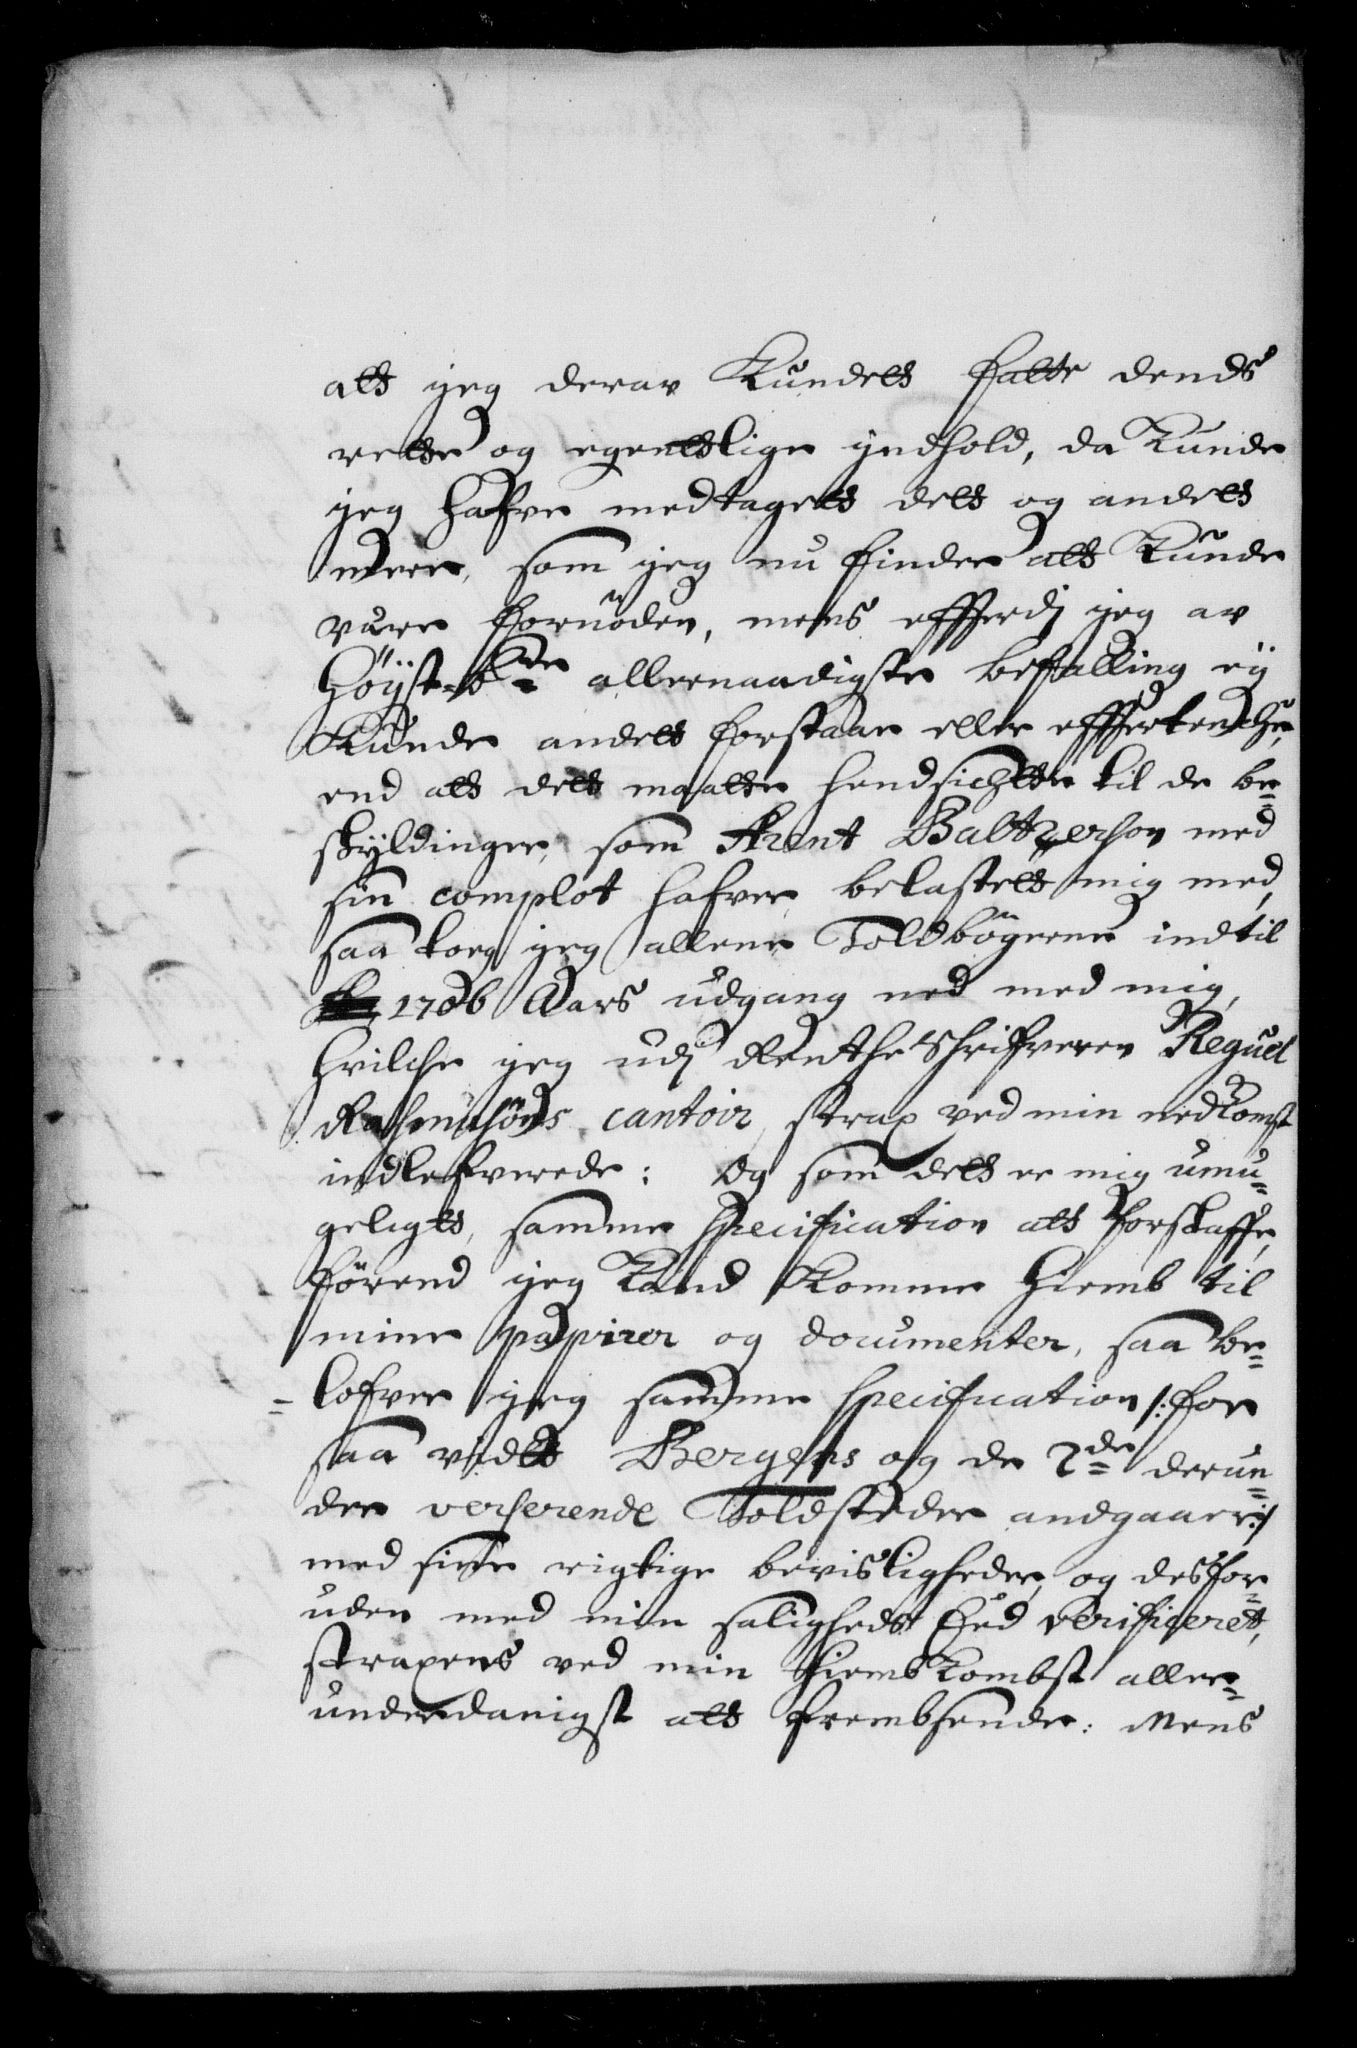 att jeg derav Kundett fatte dends
rette og egenttlige jndhold, da Kunde
jeg hafve medtagett dett og andett
mere, som jeg nu finder att Kunde
være fornöden, mens effterdj jeg av
Höyst-bte allernaadigste befalling ey
Kunde andett forstaae eller effterkenche,
end att dett maatte hendsichtte til de be=
skyldinger, som Arent Baltzerson med
sin complot hafver belastett mig med,
saa toeg jeg allene Toldbögerne indtil
1706 Aars udgang ned med mig,
hvilche jeg udj RentheSchrifveren Reguel
Rasmusöns cantoir, strax ved min nedkomst
indlefverede: Og som dett er mig umu=
geligt, samme Specification att forskaffe,
förend jeg Kand Komme hiemb til
mine papirer og documenter, saa be=
lofver jeg samme Specification /: for
saa vidt Bergens og de 2de derun=
der verserende Toldsteder andgaaer :/
med sine rigtige bevisligheder, og desfor=
uden med min saligheds Eed verificeret,
straxens ved min hiembkombst aller=
underdanigst att frembsende: Mens